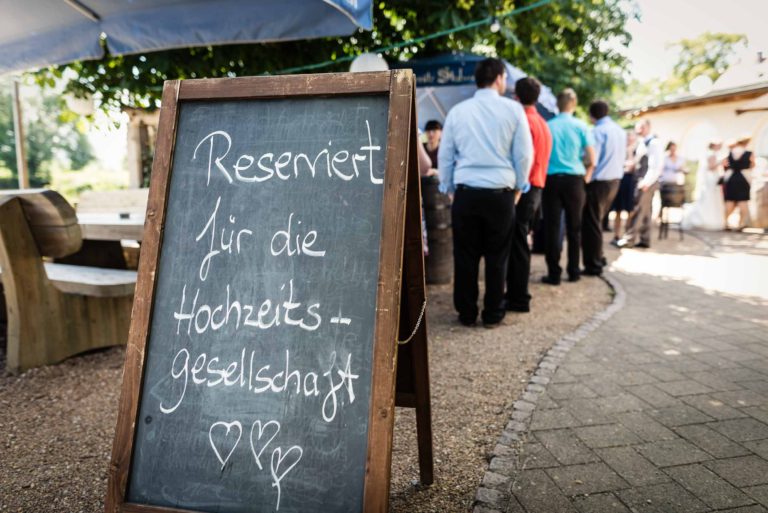 Reserviert
für die
Hochzeits-
gesellschaft